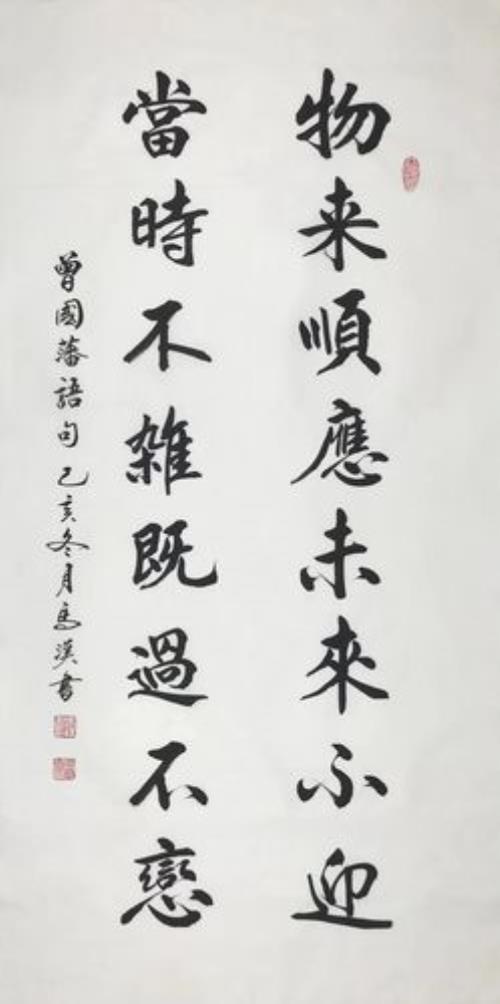 物来順應未來不迎
當時不雑既過不戀
曾國藩語句己亥冬月馬漢書